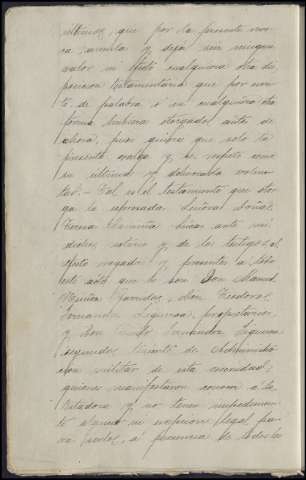 últimos, que por la presente revo-
ca, anula y deja sin ningun
valor ni efecto cualquiera otra dis
posicion testamentaria que por escri
to de palabra ó en cualquiera otra
forma hubiera otorgado antes de
ahora, pues quiere que solo la
presente valga y se respete como
su última y deliberada volun
tad.- Tal es el testamento que otor
ga la espresada Señora Doña
Teresa ante mi
dicho notario y de los testigos al
efecto rogados y presentes a todo
este acto que lo son Don Manuel
Don Teodoro
Fernandez propietarios,
y Don Fernandez
segundo de Administra
cion militar de esta vecindad;
quienes manifestaron conocer á la
testadora y no tener impedimen
to alguno ni escepcion legal pa
ra serlo, á presencia de todos los